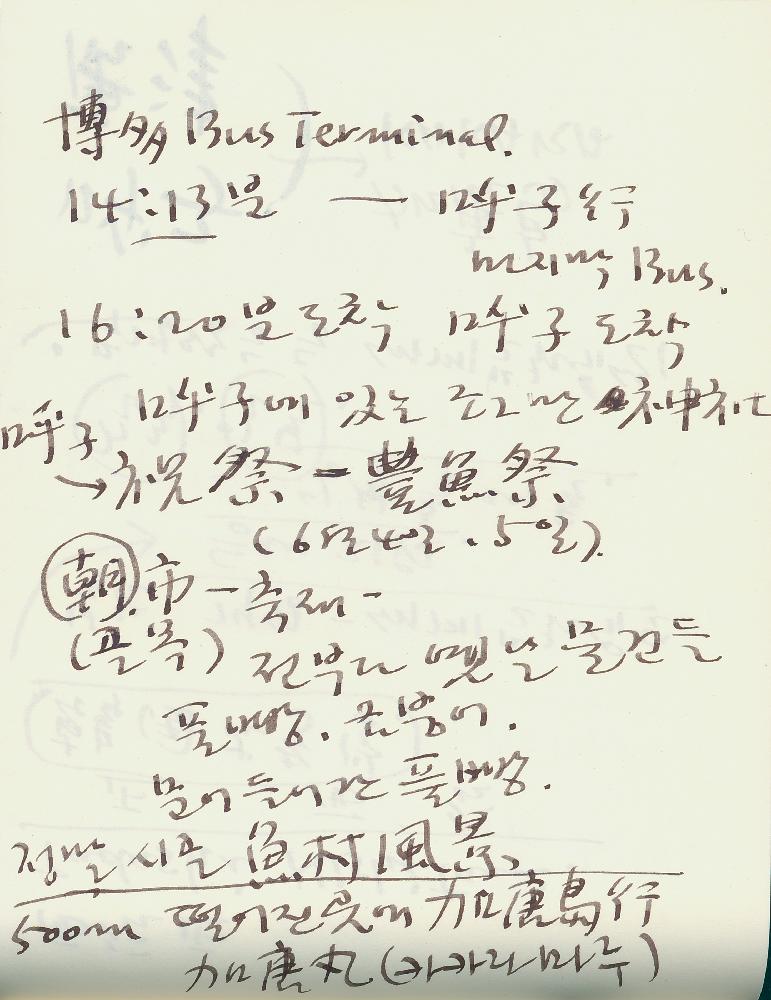 博多 Bus Terminal.
14:13분 — 呼子行
마지막 Bus.
16:20분 도착 呼子 도착
呼子에 있는 조그만 神社
呼子
→祝祭 - 豊魚祭
(6월4일.5일).
朝.市 - 축제 -
(골목) 전부다 옛날 물건들
풀빵. 금붕어.
들어간 풀빵.
정말 시골 魚村風景.
500m 떨어진 곳에 加唐島行
加唐丸(카카라마루)